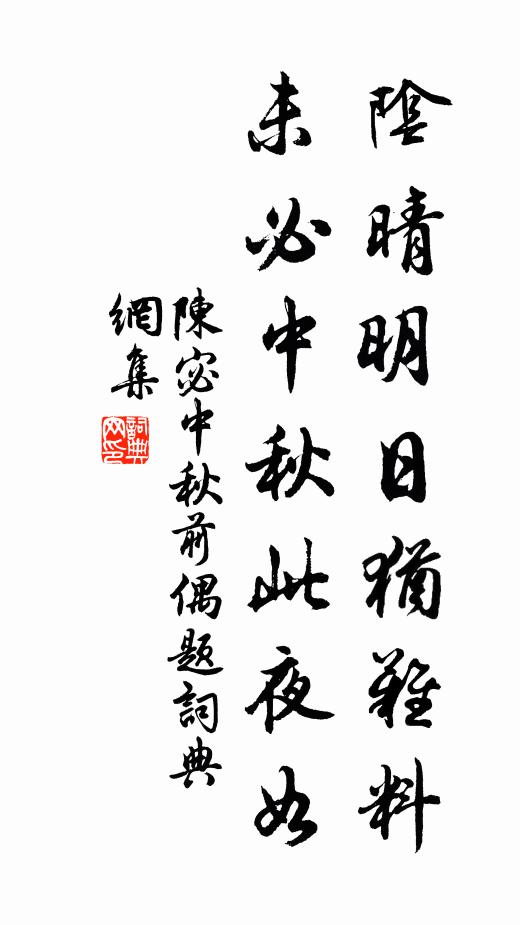 陰晴明日猶難料
未必中秋此夜如
陳宓中秋前偶題詞典
網集
詞典网印